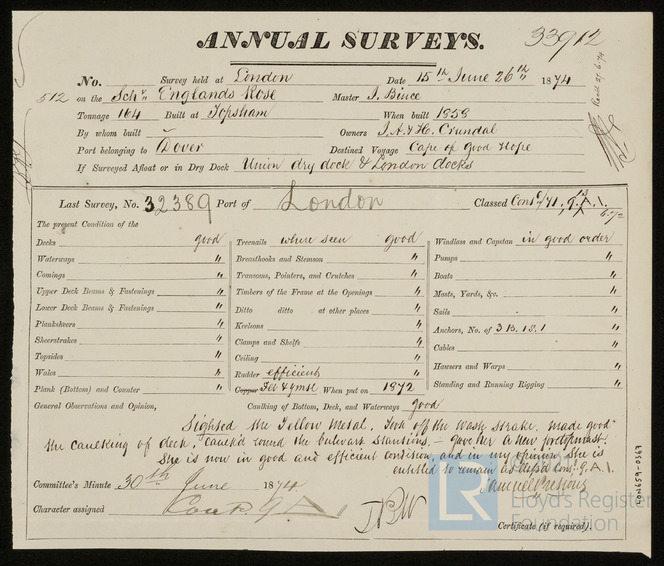 ANNUAL SURVEYS.
33912
No. Survey held at London Date 15th June 26th 1874
512 on the Schr Englands Rose Master J. Bince
Tonnage 164 Built at Topsham When built 1858
By whom built Owners J.A & H. Crundal
Port belonging to Dover Destined Voyage Cape of Good Hope
If Surveyed Afloat or in Dry Dock Union dry dock & London docks
Last Survey, No. 32389 Port of London Classed Cons
The present Condition of the
Decks good
Waterways "
Comings "
Upper Deck Beams & Fastenings "
Lower Deck Beams & Fastenings "
Planksheers "
Sheerstrakes "
Topsides "
Wales "
Plank (Bottom) and Counter "
Treenails where seen good
Breasthooks and Stemson "
Transoms, Pointers, and Crutches "
Timbers of the Frame at the Openings "
Ditto ditto at other places "
Keelsons "
Clamps and Shelfs "
Ceiling "
Rudder efficient
Copper When put on 1872
Windlass and Capstan in good order
Pumps "
Boats "
Masts, Yards, &c. "
Sails "
Anchors, No. of 3 B. 1S. 1 "
Cables "
Hawsers and Warps "
Standing and Running Rigging "
General Observations and Opinion, Caulking of Bottom, Deck, and Waterways Good
Sighted the Yellow Metal. Took off the Wash Strake. made good
the caulking of deck, caulk'd round the bulwark stantions. – Gave her a new foretopmast.
She is now in good and efficient condition and in my opinion she is
entitled to remain as class'd Cons. 9. A. 1.
Committee's Minute 30th June 1874
Character assigned
Certificate (if required).
LR
Lloyd's Register
Foundation
HON659-0367